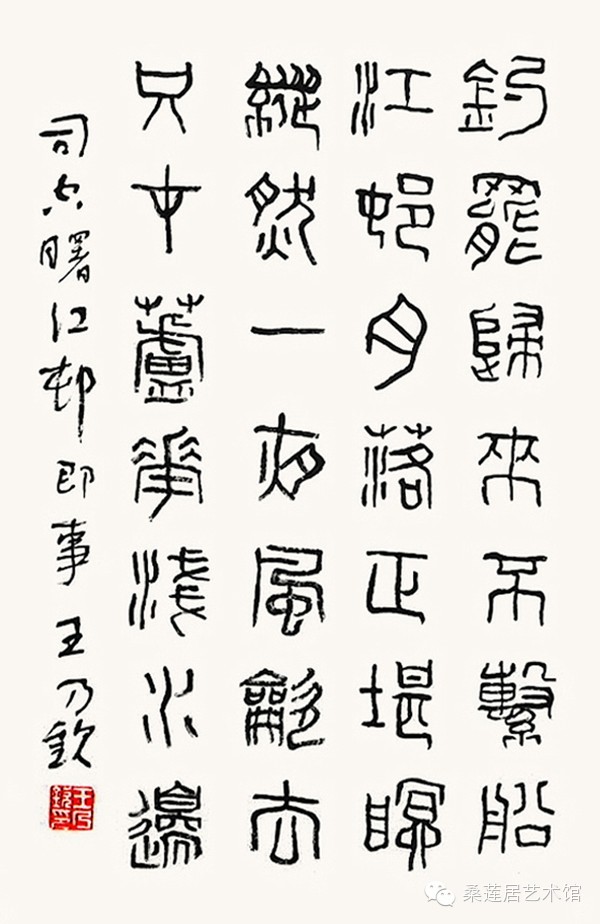 釣罷歸來不繫船
江邨月落正堪瞑
縱然一夜風龡去
只才蘆華淺水邊
司空曙江邨即事 王乃欽
王乃欽印
桑莲居艺术馆